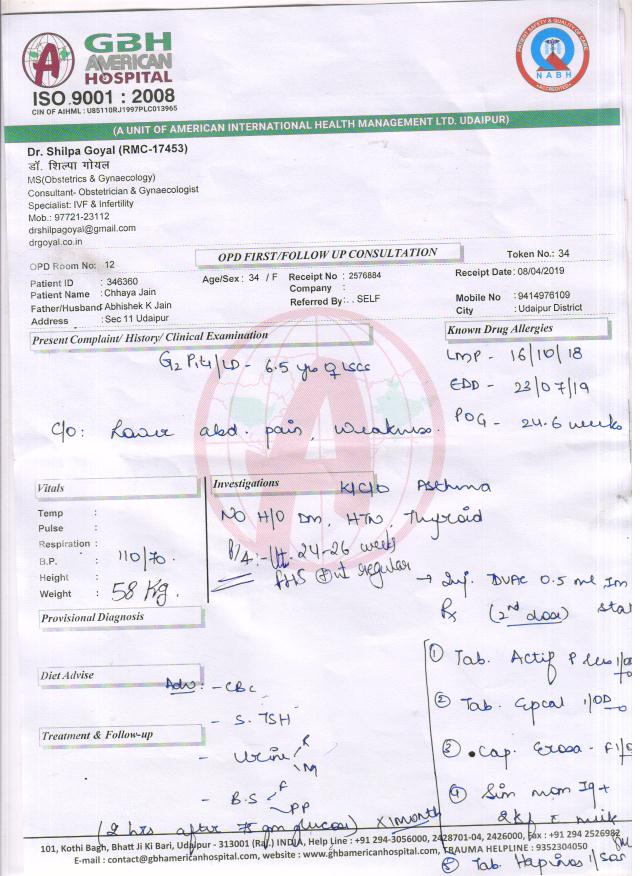 GBH
AMERICAN
HOSPITAL
ISO 9001 : 2008
CIN OF AIHML : U85110RJ1997PLC013965
PATIENT SAFETY & QUALITY OF CARE
NABH
ACCREDITED
(A UNIT OF AMERICAN INTERNATIONAL HEALTH MANAGEMENT LTD. UDAIPUR)
Dr. Shilpa Goyal (RMC-17453)
डॉ. शिल्पा गोयल
MS(Obstetrics & Gynaecology)
Consultant- Obstetrician & Gynaecologist
Specialist: IVF & Infertility
Mob.: 97721-23112
drshilpagoyal@gmail.com
drgoyal.co.in
OPD Room No: 12
OPD FIRST/FOLLOW UP CONSULTATION
Token No.: 34
Patient ID : 346360
Age/Sex : 34 / F
Receipt No : 2576884
Receipt Date : 08/04/2019
Patient Name : Chhaya Jain
Company :
Father/Husband : Abhishek K Jain
Referred By : . SELF
Mobile No : 9414976109
Address : Sec 11 Udaipur
City : Udaipur District
Present Complaint/ History/ Clinical Examination
Known Drug Allergies
G2 P1 L1 / LD - 6.5 yrs LSCS
LMP - 16/10/18
EDD - 23/07/19
POG - 24.6 weeks
C/o: Lower abd. pain, weakness.
Vitals
Investigations
K/C/O Asthma
No H/O DM, HTN, Thyroid
P/A :- Ut. 24-26 weeks
FHS regular
Temp :
Pulse :
Respiration :
B.P. : 110/70.
Height :
Weight : 58 Kg.
→ Inj. 0.5 ml Im
Rx (2nd dose) stat
Provisional Diagnosis
① Tab. Actif Plus 1/OD
Diet Advise
Adv:- CBC
② Tab. Epcal 1/OD
- S. TSH
Treatment & Follow-up
- Urine R
M
③ Cap.
- B.S F
PP
④ Sim mom Iq+
(2 hrs after 75 gm glucose) x 1 month
milk
101, Kothi Bagh, Bhatt Ji Ki Bari, Udaipur - 313001 (Raj.) INDIA, Help Line : +91 294-3056000, 2428701-04, 2426000, Fax : +91 294 2526982
E-mail : contact@gbhamericanhospital.com, website : www.gbhamericanhospital.com, TRAUMA HELPLINE : 9352304050
⑤ Tab.